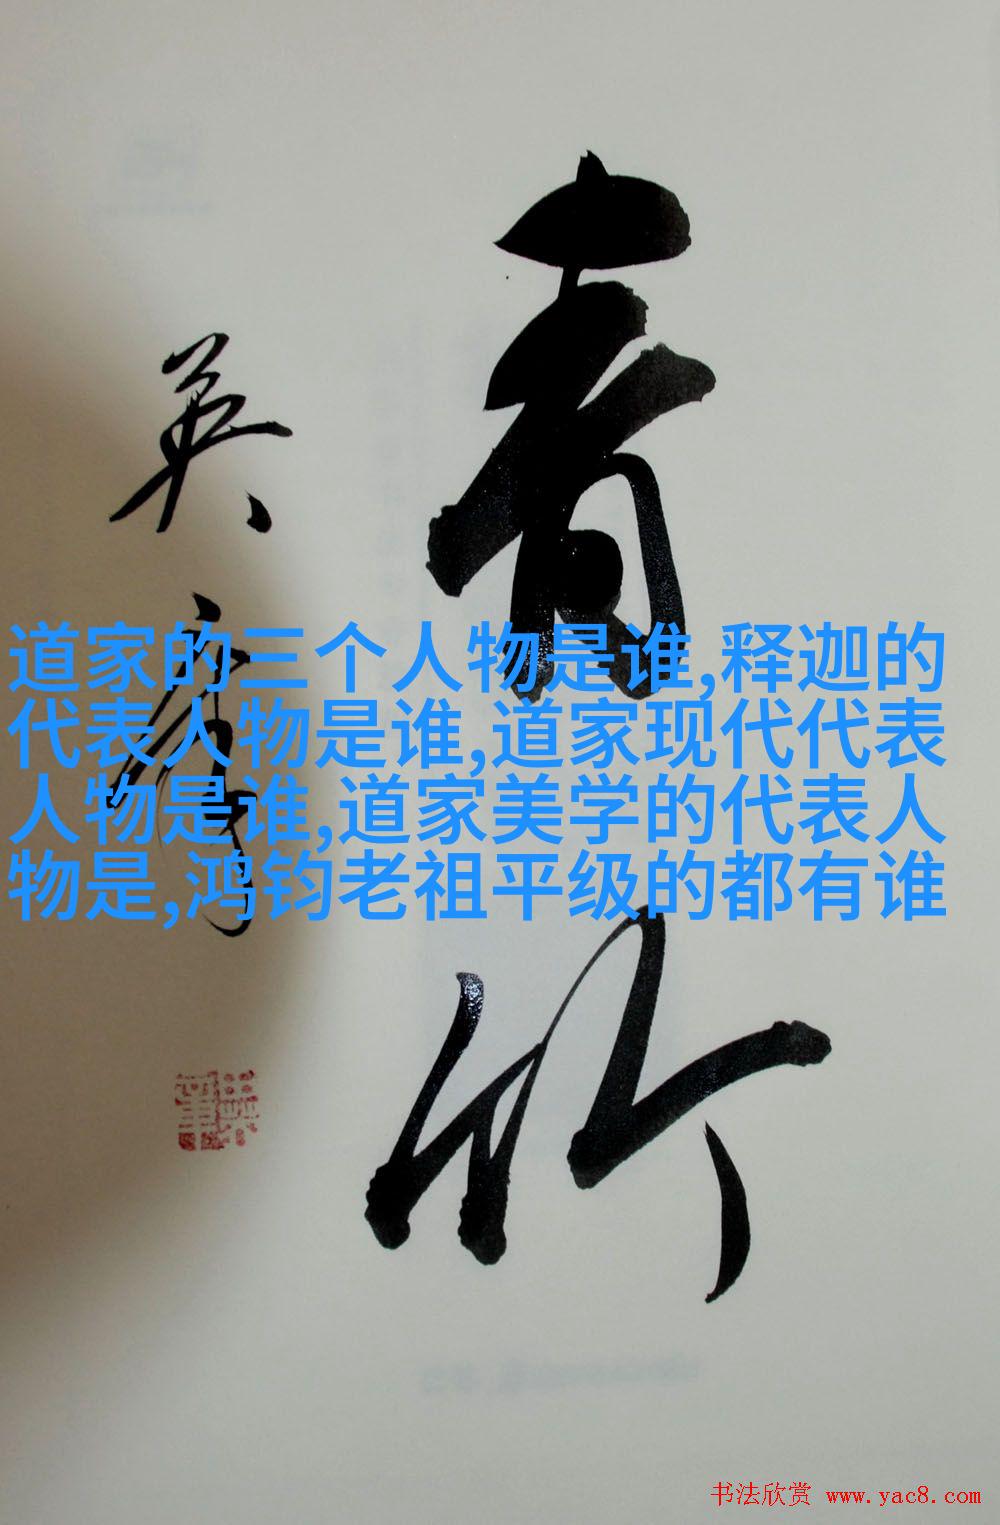 青竹
英彦
道家的三个人物是谁,释迦的
代表人物是谁,道家现代代表
人物是谁,道家美学的代表人
物是,鸿钧老祖平级的都有谁
书法欣赏 www.yac8.com